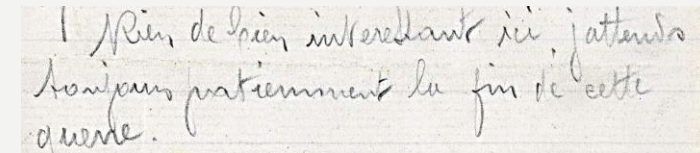 Rien de bien interessant ici, j'attends
toujours patiemment la fin de cette
guerre.